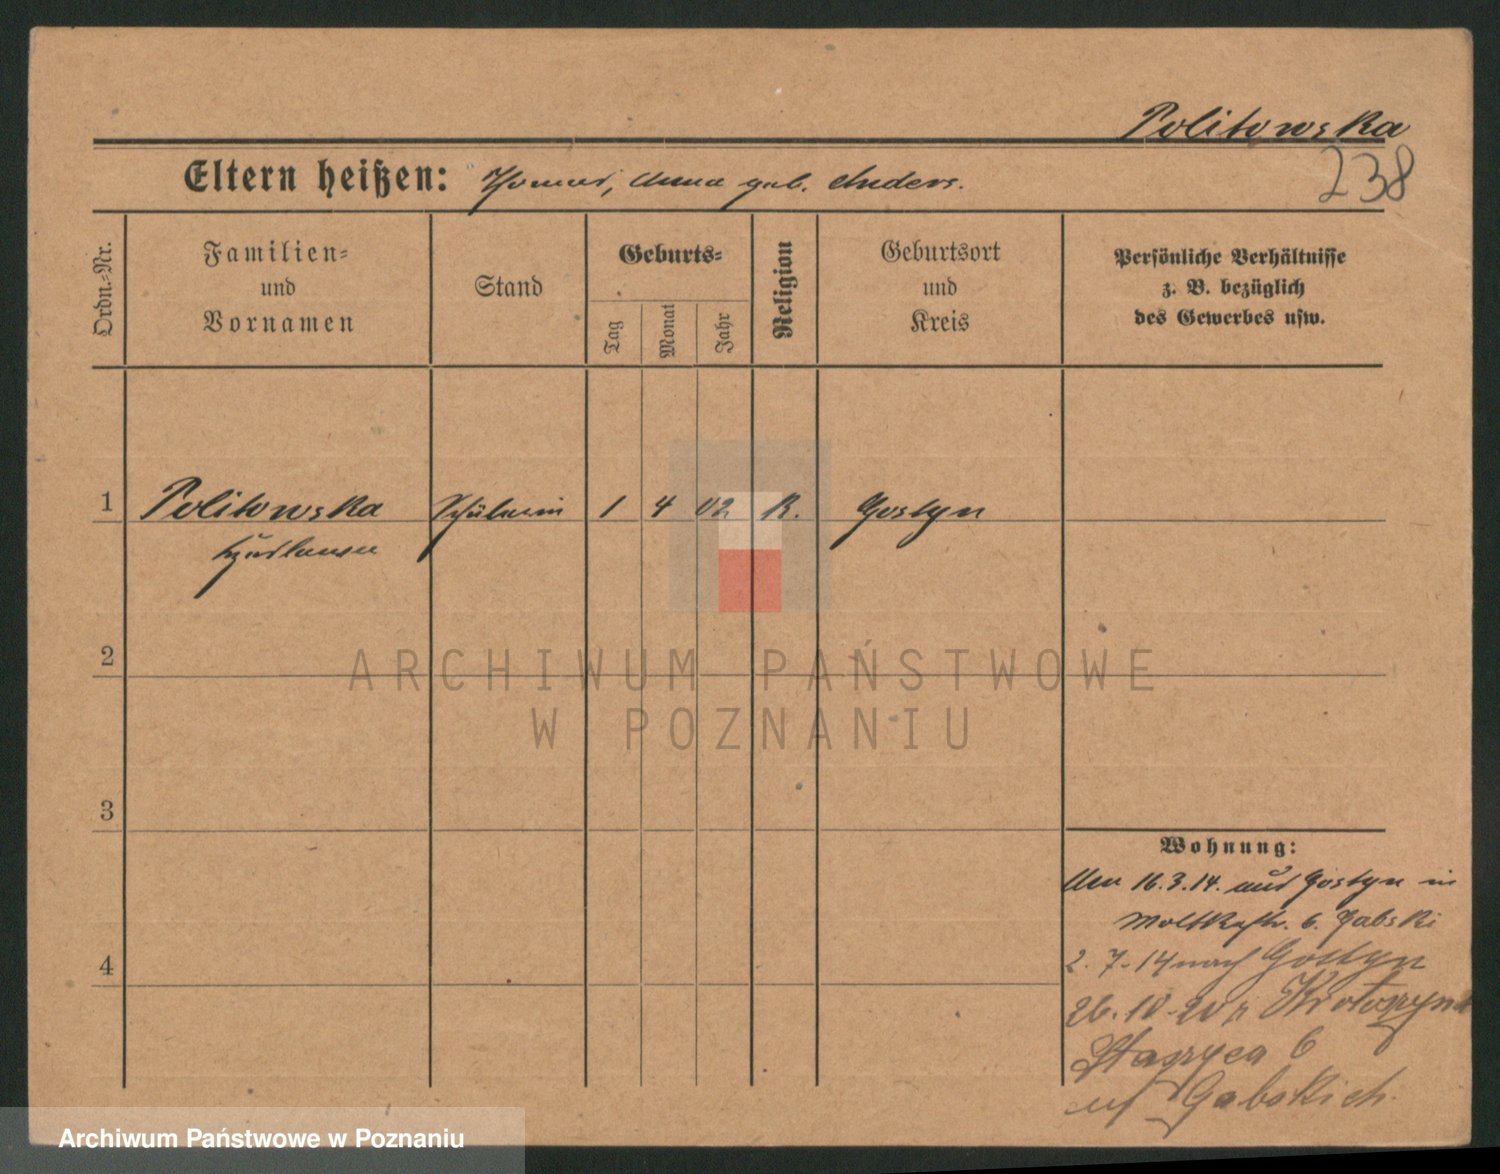 Politowska
238
Eltern heißen: Thomas, Anna geb. Anders.
Ordn.-Nr.
Familien-
und
Vornamen
Stand
Geburts-
Tag
Monat
Jahr
Religion
Geburtsort
und
Kreis
Persönliche Verhältnisse
z. B. bezüglich
des Gewerbes usw.
1 Politowska Schülerin 1 4 02 K. Gostyn
2
3
4
Wohnung:
16.3.14. aus Gostyn in
Moltkestr. 6. Gabski
2.7.14 nach Gostyn
26.10.20 z Krotoszyna
Staszyca 6
Gabskich.
ARCHIWUM PAŃSTWOWE
W POZNANIU
Archiwum Państwowe w Poznaniu